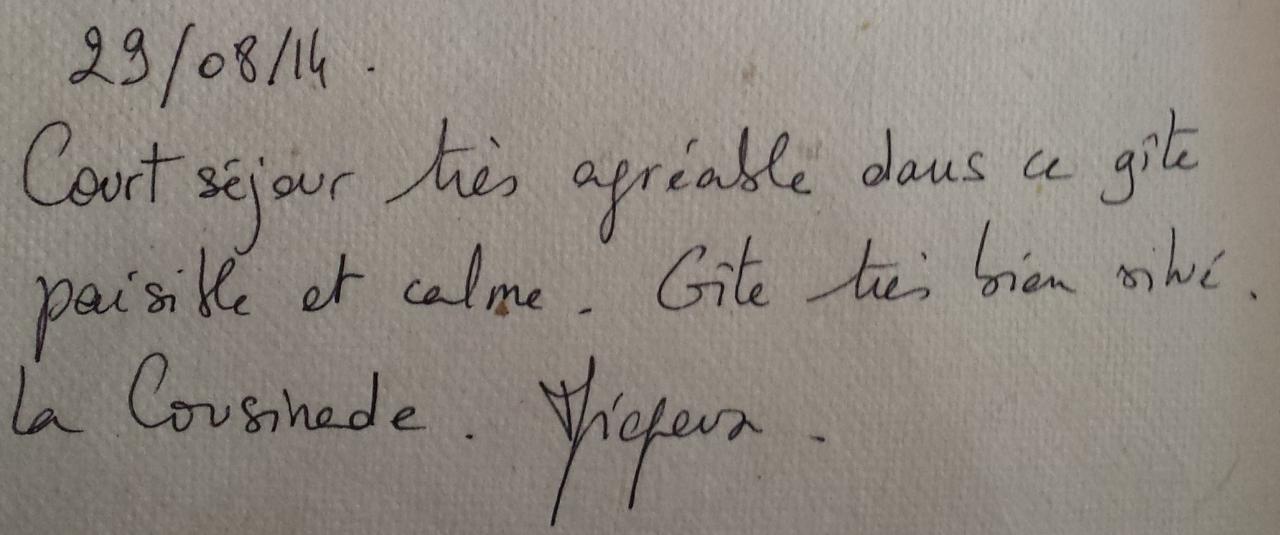 29/08/14.
Court séjour très agréable dans ce gîte
paisible et calme. Gîte très bien situé.
La Cousinade.